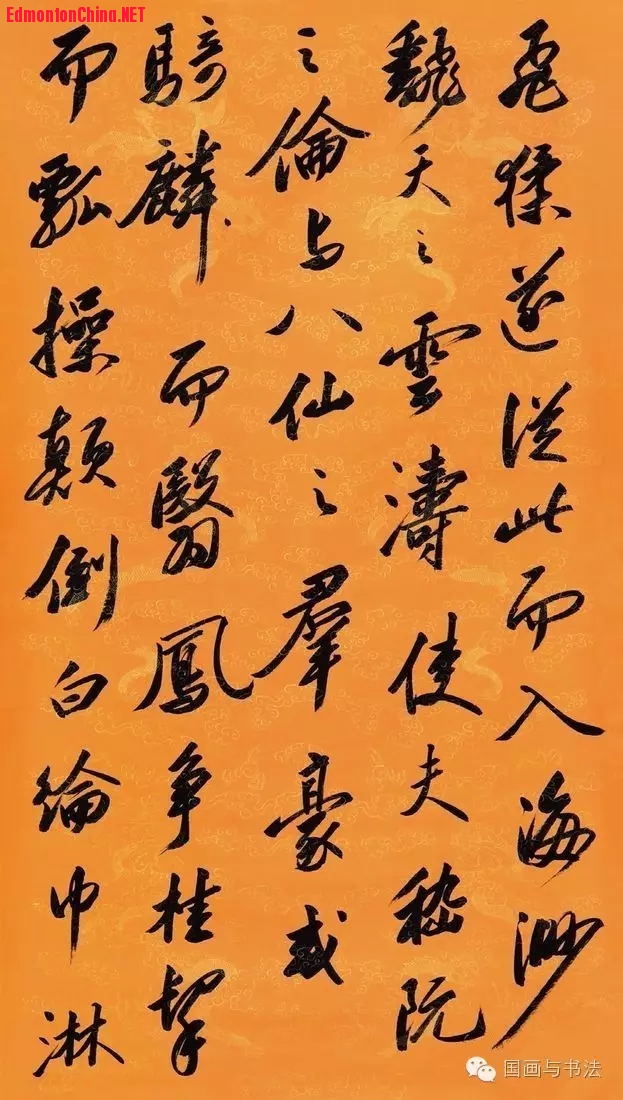 EdmontonChina.NET
飛猱遂從此而入海渺
飜天之雲濤使夫嵇阮
之倫与八仙之羣豪或
騎麟而翳鳳争桂挈
而瓢操顛倒白綸巾淋
国画与书法